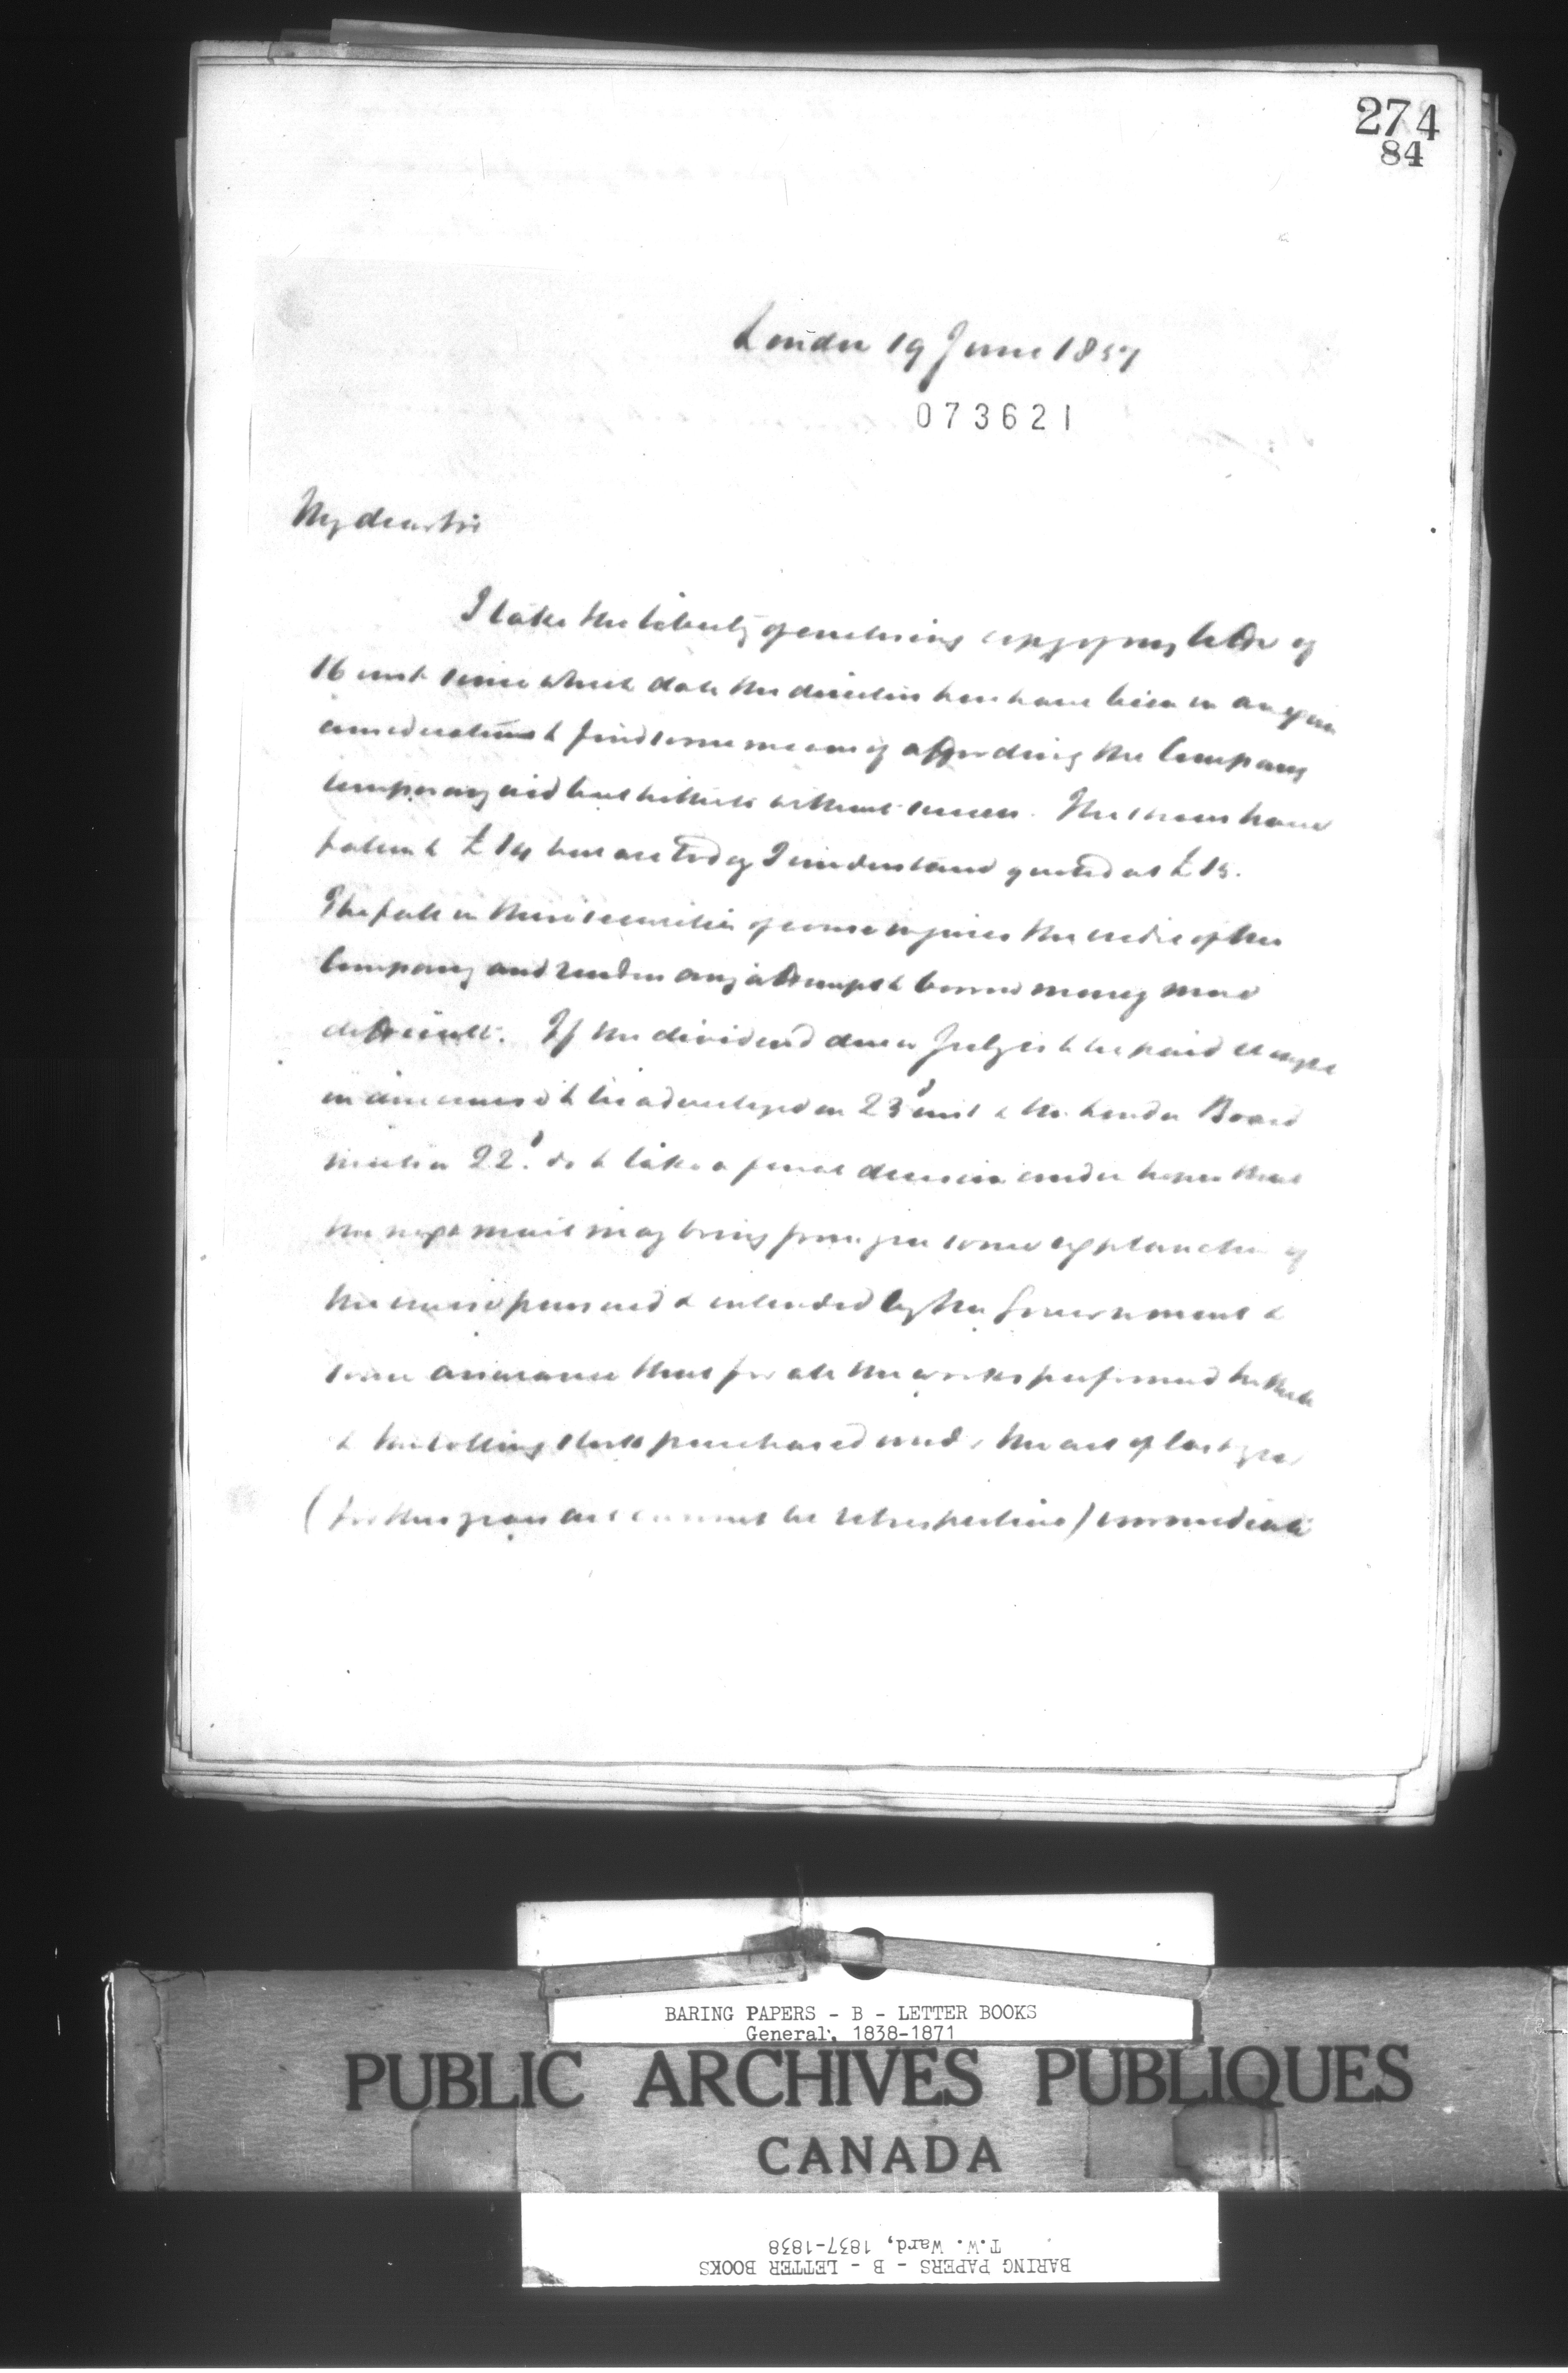 274
84
London 19 June 1857
073621
My dear Sir
I take the liberty of enclosing copy of my letter of
16 inst since which date the directors here have been in anxious
consideration to find some means of affording the Company
temporary aid but hitherto without success. The shares have
fallen to £14 but are today I understand quoted at £15.
The fall in these securities of course injures the credit of the
Company and renders any attempt to borrow money more
difficult. If the dividend due in July is to be paid it ought
in due course to be advertized on 23d inst & the London Board
meet on 22d do to take a final decision under hopes that
the next mail may bring from you some explanation of
the course pursued & intended by the Government &
some assurance that for all the works performed hitherto
& the rolling stock purchased under the act of last year
(for this years act cannot be retrospective) immediate
BARING PAPERS - B - LETTER BOOKS
General, 1838-1871
PUBLIC ARCHIVES PUBLIQUES
CANADA
T.W. Ward, 1837-1838
BARING PAPERS - B - LETTER BOOKS